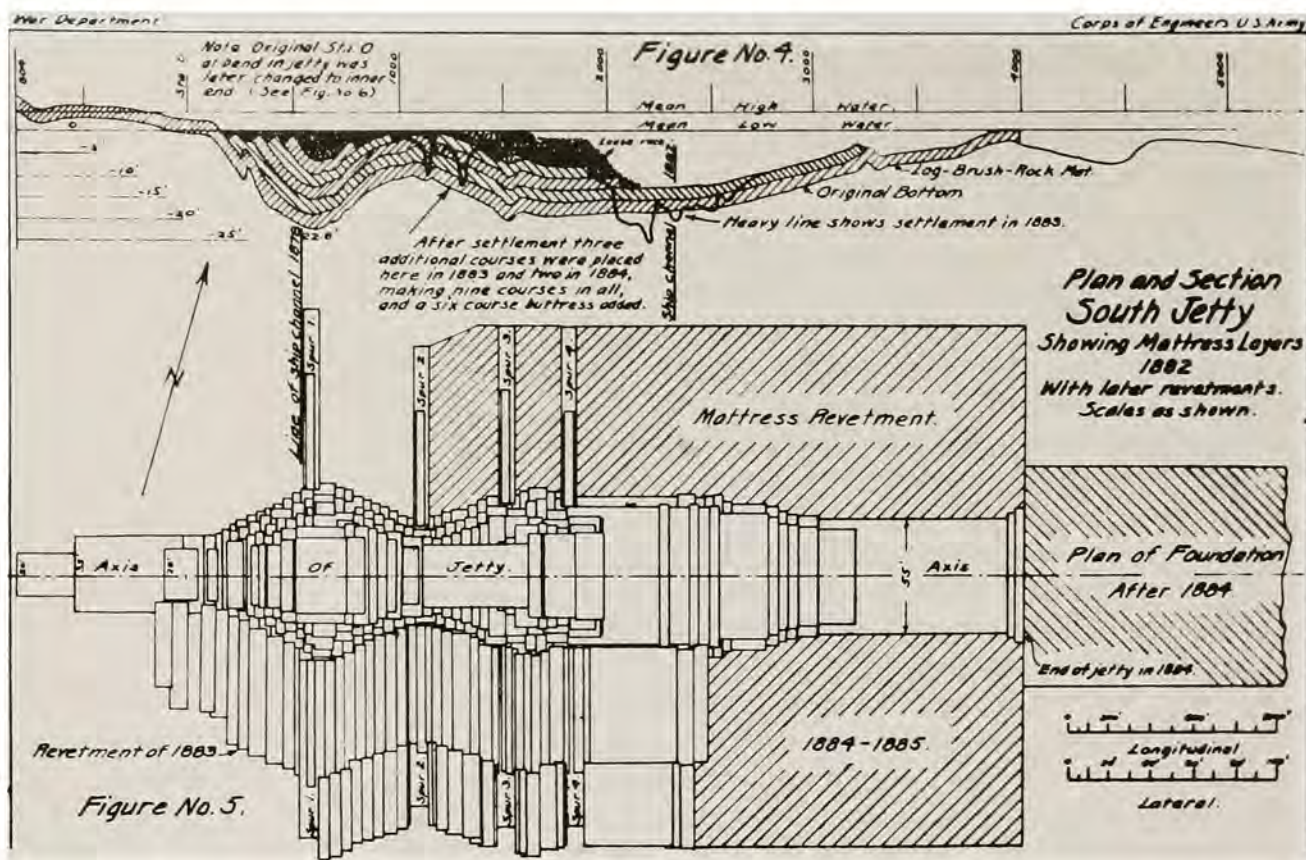 War Department
Corps of Engineers U.S. Army
Figure No. 4.
Note Original Sta. 0
at bend in jetty was
later changed to inner
end. (See Fig. No 6)
800
Sta 0
1000
2000
3000
4000
5000
Mean High Water.
Mean Low Water.
0
-10'
-15'
-20'
-25'
22.8'
Loose rock
1882
Log-Brush-Rock Mat.
Original Bottom
Heavy line shows settlement in 1883.
After settlement three
additional courses were placed
here in 1883 and two in 1884,
making nine courses in all,
and a six course buttress added.
Ship Channel
Line of ship channel 1878
Plan and Section
South Jetty
Showing Mattress Layers
1882
With later revetments.
Scales as shown.
N
Spur 1.
Spur 2
Spur 3.
Spur 4.
Mattress Revetment.
Axis
Of
Jetty.
55'
Axis
Plan of Foundation
After 1884
End of jetty in 1884.
Revetment of 1883
1884-1885.
Spur 1.
Spur 2
Spur 3
Spur 4
Longitudinal
Lateral.
Figure No. 5.